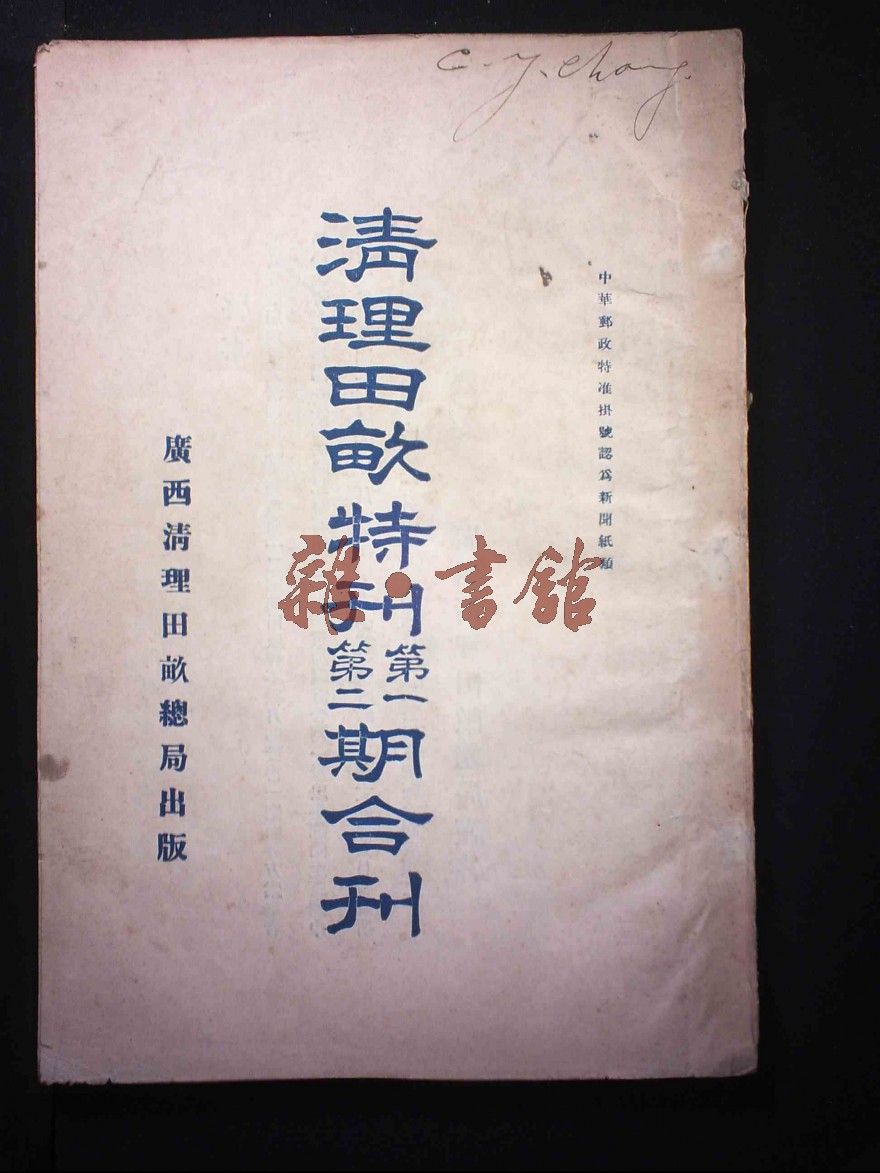 C. Y. Chang.
中華郵政特准掛號認爲新聞紙類
清理田畝特刊第一第二期合刊
廣西清理田畝總局出版
雜·書館